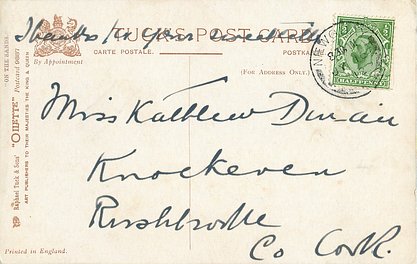 Thanks for your
TUCK'S POST CARD
CARTE POSTALE.
POSTKA
By Appointment
(FOR ADDRESS ONLY.)
NEW
"ON THE SANDS."
Raphael Tuck & Sons' "OILETTE" Postcard
ART PUBLISHERS TO THEIR MAJESTIES THE KING & QUEEN
Miss Kathleen
Knockeven
Rushbrooke
Co Cork.
Printed in England.